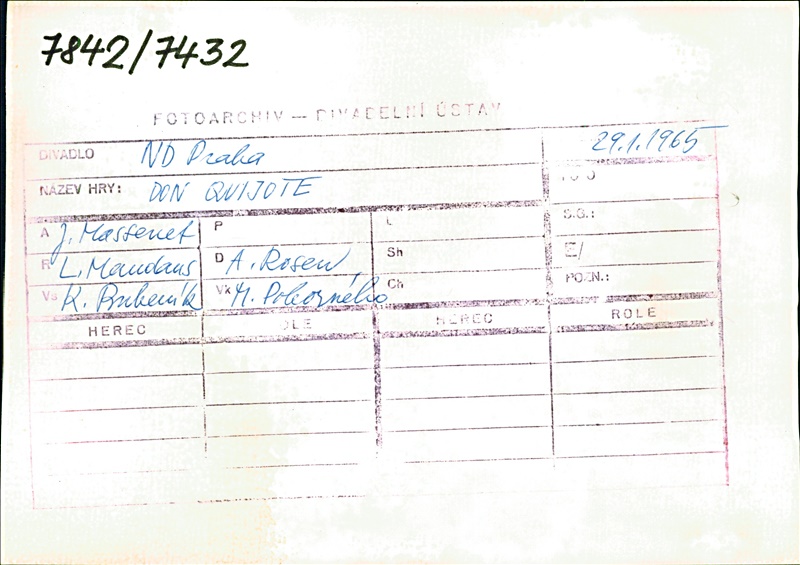 7842/7432
FOTOARCHIV — DIVADELNÍ ÚSTAV
DIVADLO ND Praha 29.1.1965
NÁZEV HRY: DON QUIJOTE
A J. Massenet P L S.G.:
R L. Mandaus D A. Rosen Sh E/
Vs K. Vk M. Pokorného Ch POZN.:
HEREC ROLE HEREC ROLE